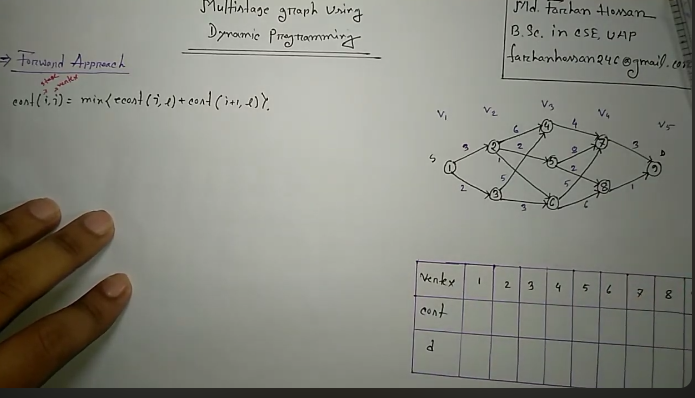 Multistage graph Using
Dynamic Programming
Md. Farhan Hossan
B.Sc. in CSE, UAP
farhanhossan246@gmail.com
→ Forward Approach
stage
vertex
cost(i,j) = min{ecost(j,l)+cost(i+1,l)}.
V1 V2 V3 V4 V5
S 1 2 3 4 5 6 7 8 9 D
3 2 6 2 1 5 3 4 8 2 5 6 3 1
Vertex 1 2 3 4 5 6 7 8
cost
d